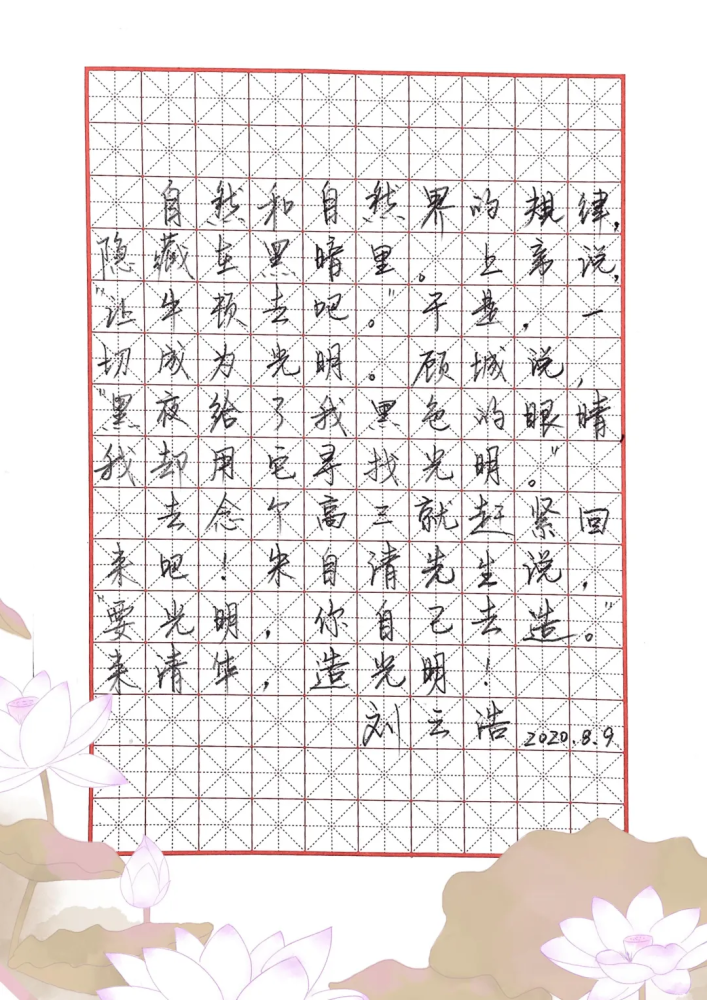 自然和自然界的规律，
隐藏在黑暗里。上帝说，
“让牛顿去吧。”于是，一
切成为光明。顾城说，
“黑夜给了我黑色的眼睛，
我却用它寻找光明。”
去念个高三就赶紧回
来吧！朱自清先生说，
“要光明，你自己去造。”
来清华，造光明！
刘云浩 2020.8.9